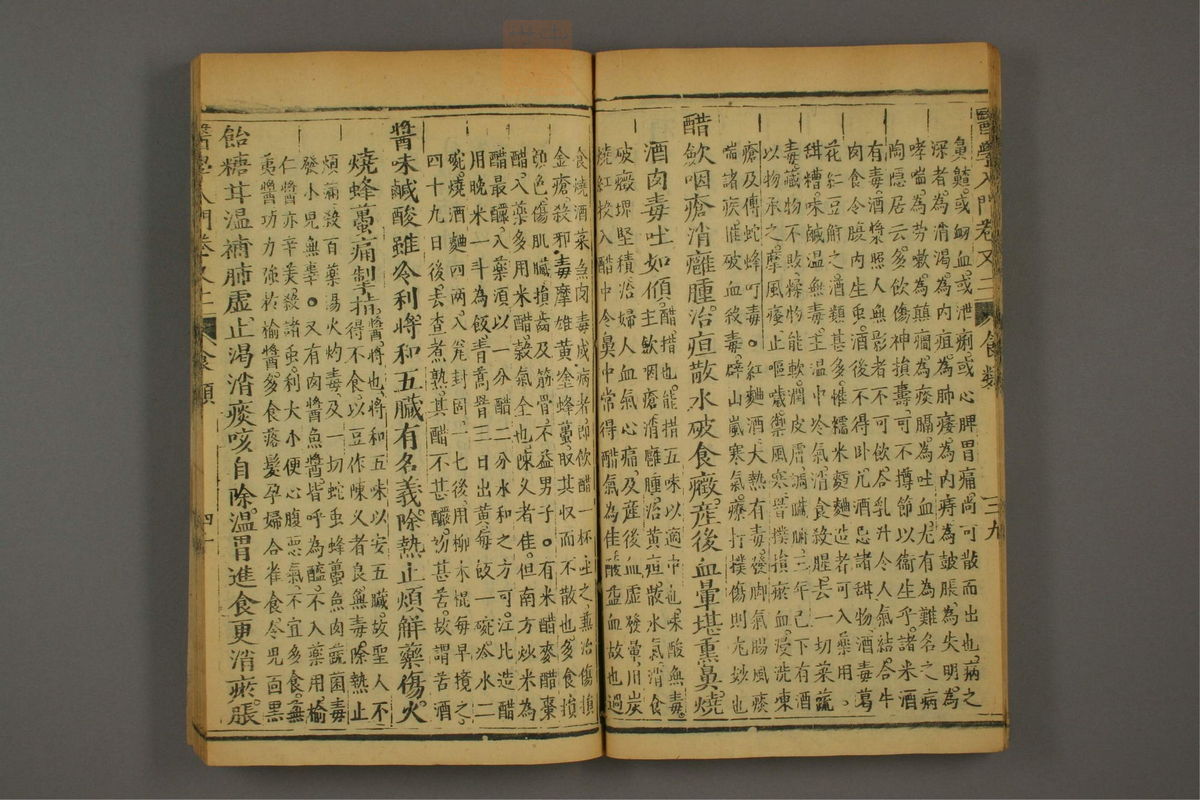 醫學入門卷又二 食類 三九
鼻齄。或衂血。或泄痢。或心脾胃痛。尚可散而出也。病之
深者。為消渴。為內疽。為肺痿。為內痔。為皷脹。為失明。為
哮喘。為勞嗽。為癲癇。為痰膈。為吐血。尤有為難名之病
陶隱居云。多飲傷神損壽。可不撙節以衛生乎。諸米酒
有毒。酒漿照人無影者不可飲。合乳汁令人氣結。合牛
肉食令腹內生虫。酒後不得卧
花紅豆
甜糟。味鹹温無毒。主温中冷氣。消食殺腥。去一切菜蔬
毒。藏物不敗。糅物能軟。潤皮膚
以物承之。摩風瘙。止嘔噦
瘡及傅蛇蜂叮毒。紅麵酒大熱有毒。發脚氣腸風痰
喘諸疾。惟破血殺毒。辟山嵐寒氣。療打撲傷則尤妙也
醋歛咽瘡消癰腫。治疸散水破食癥。產後血暈堪熏鼻。燒
酒肉毒吐如傾。主歛咽瘡。消癰腫。治黃疸。散水氣。消食
破癥堺堅積。治婦人血氣心痛。及產後血虛發暈。用炭
燒紅投入醋中。令鼻中常得醋氣為佳。酸益血故也。過
食燒酒菜魚肉毒成病者。即飲醋一杯吐之。兼治傷損
金瘡。殺邪毒。摩雄黃塗蜂蠆。取其收而不散也。多食損
顏色。傷肌臟。損齒及筋骨。不益男子。有米醋麥醋棗
醋。入藥多用米醋。穀氣全也。陳久者佳。但南方炒米為
醋最釅。入藥須以一分醋二分水和之方可。江北造醋
用晚米一斗為飯。青蒿罯三日出黃。每飯一碗。冷水二
碗。燒酒麯四兩。入瓮封固。一七後。用柳木棍每早攪之。
四十九日後。去查煮熟。其醋不甚釅。初甚苦。故謂苦酒
醬味鹹酸雖冷利。將和五臟有名義。除熱止煩解藥傷。火
燒蜂蠆痛制掯。醬。將也。將和五味以安五臟。故聖人不
得不食。以豆作陳久者良。無毒。除熱止
煩滿。殺百藥湯火灼毒。及一切蛇虫蜂蠆魚肉蔬菌毒
發小兒無辜。又有肉醬魚醬皆呼為醢。不入藥用。榆
仁醬亦辛美。殺諸虫。利大小便心腹惡氣。不宜多食。蕪
荑醬功力強於榆醬。多食落髮。孕婦合雀食令兒面黑
飴糖甘温補肺虛。止渴消痰咳自除。温胃進食更消瘀。脹
醫學入門卷又二 食類 四十